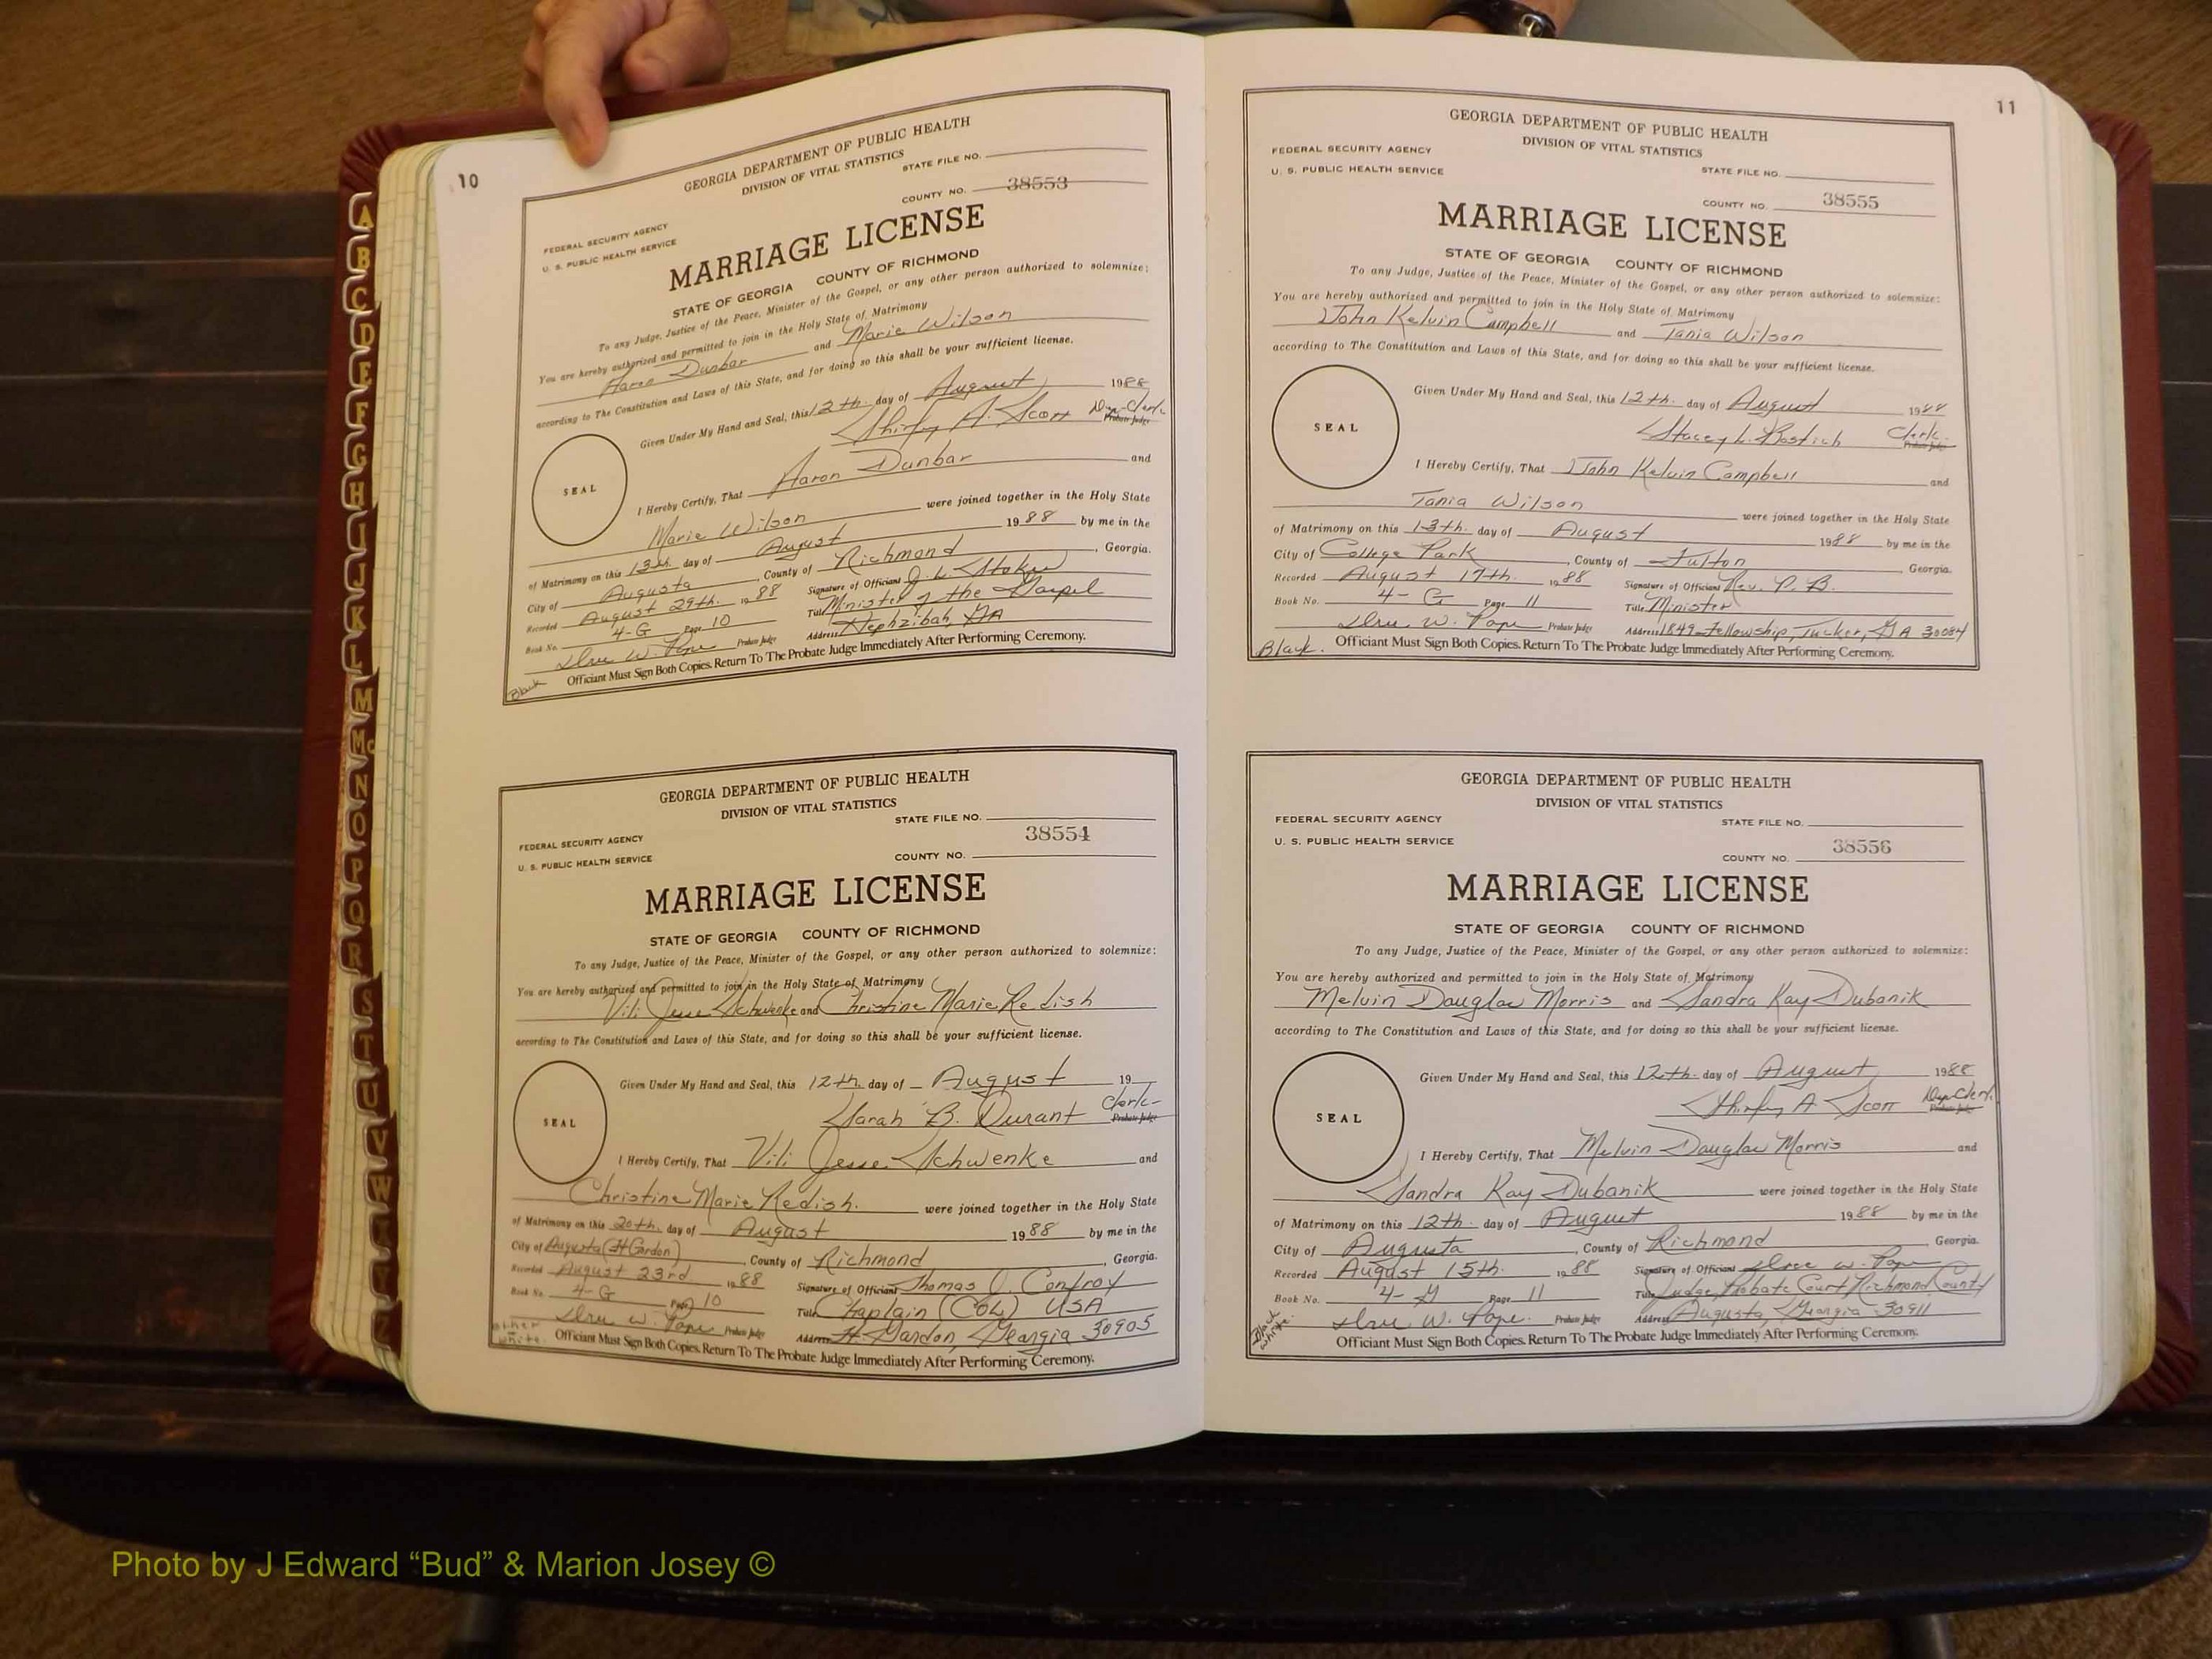 10
GEORGIA DEPARTMENT OF PUBLIC HEALTH
DIVISION OF VITAL STATISTICS
STATE FILE NO.
COUNTY NO. 38553
FEDERAL SECURITY AGENCY
U. S. PUBLIC HEALTH SERVICE
MARRIAGE LICENSE
STATE OF GEORGIA COUNTY OF RICHMOND
To any Judge, Justice of the Peace, Minister of the Gospel, or any other person authorized to solemnize:
You are hereby authorized and permitted to join in the Holy State of Matrimony
Aaron Dunbar and Marie Wilson
according to The Constitution and Laws of this State, and for doing so this shall be your sufficient license.
Given Under My Hand and Seal, this 12th. day of August 1988
Shirley A. Scott Dep-Clerk Probate Judge
SEAL
I Hereby Certify, That Aaron Dunbar and
Marie Wilson were joined together in the Holy State
of Matrimony on this 13th. day of August 1988 by me in the
City of Augusta, County of Richmond, Georgia.
Recorded August 29th. 1988 Signature of Officiant J. L. Stokes
Book No. 4-G Page 10 Title Minister of the Gospel
Drue W. Pope Probate Judge Address Hephzibah, GA
Black Officiant Must Sign Both Copies. Return To The Probate Judge Immediately After Performing Ceremony.
GEORGIA DEPARTMENT OF PUBLIC HEALTH
DIVISION OF VITAL STATISTICS
STATE FILE NO.
FEDERAL SECURITY AGENCY
38554
U. S. PUBLIC HEALTH SERVICE
COUNTY NO.
MARRIAGE LICENSE
STATE OF GEORGIA COUNTY OF RICHMOND
To any Judge, Justice of the Peace, Minister of the Gospel, or any other person authorized to solemnize:
You are hereby authorized and permitted to join in the Holy State of Matrimony
Vili Jesse Schwenke and Christine Marie Redish
according to The Constitution and Laws of this State, and for doing so this shall be your sufficient license.
Given Under My Hand and Seal, this 12th. day of August 19
Sarah B. Durant Clerk- Probate Judge
SEAL
I Hereby Certify, That Vili Jesse Schwenke and
Christine Marie Redish. were joined together in the Holy State
of Matrimony on this 20th. day of August 1988 by me in the
City of Augusta (Ft Gordon), County of Richmond, Georgia.
Recorded August 23rd 1988 Signature of Officiant Thomas J. Confroy
Book No. 4-G Page 10 Title Chaplain (COL) USA
Drue W. Pope Probate Judge Address Ft. Gordon, Georgia 30905
other white. Officiant Must Sign Both Copies. Return To The Probate Judge Immediately After Performing Ceremony.
11
GEORGIA DEPARTMENT OF PUBLIC HEALTH
DIVISION OF VITAL STATISTICS
FEDERAL SECURITY AGENCY
U. S. PUBLIC HEALTH SERVICE
STATE FILE NO.
COUNTY NO. 38555
MARRIAGE LICENSE
STATE OF GEORGIA COUNTY OF RICHMOND
To any Judge, Justice of the Peace, Minister of the Gospel, or any other person authorized to solemnize:
You are hereby authorized and permitted to join in the Holy State of Matrimony
John Kelvin Campbell and Tania Wilson
according to The Constitution and Laws of this State, and for doing so this shall be your sufficient license.
Given Under My Hand and Seal, this 12th. day of August 1988
Stacey L. Bostich Clerk- Probate Judge
SEAL
I Hereby Certify, That John Kelvin Campbell and
Tania Wilson were joined together in the Holy State
of Matrimony on this 13th. day of August 1988 by me in the
City of College Park, County of Fulton, Georgia.
Recorded August 17th. 1988 Signature of Officiant Rev. P. B.
Book No. 4-G Page 11 Title Minister
Drue W. Pope Probate Judge Address 1849 Fellowship, Tucker, GA 30084
Black. Officiant Must Sign Both Copies. Return To The Probate Judge Immediately After Performing Ceremony.
GEORGIA DEPARTMENT OF PUBLIC HEALTH
DIVISION OF VITAL STATISTICS
FEDERAL SECURITY AGENCY
STATE FILE NO.
U. S. PUBLIC HEALTH SERVICE
COUNTY NO. 38556
MARRIAGE LICENSE
STATE OF GEORGIA COUNTY OF RICHMOND
To any Judge, Justice of the Peace, Minister of the Gospel, or any other person authorized to solemnize:
You are hereby authorized and permitted to join in the Holy State of Matrimony
Melvin Douglas Morris and Sandra Kay Dubanik
according to The Constitution and Laws of this State, and for doing so this shall be your sufficient license.
Given Under My Hand and Seal, this 12th. day of August 1988
Shirley A. Scott Dep Clerk. Probate Judge
SEAL
I Hereby Certify, That Melvin Douglas Morris and
Sandra Kay Dubanik were joined together in the Holy State
of Matrimony on this 12th. day of August 1988 by me in the
City of Augusta, County of Richmond, Georgia.
Recorded August 15th. 1988 Signature of Officiant Drue W. Pope
Book No. 4-G Page 11 Title Judge, Probate Court, Richmond County
Drue W. Pope. Probate Judge Address Augusta, Georgia 30911
Black white. Officiant Must Sign Both Copies. Return To The Probate Judge Immediately After Performing Ceremony.
A
B
C
D
E
F
G
H
I
J
K
L
M
Mc
N
O
P
Q
R
S
T
U
V
W
Y
Z
Photo by J Edward “Bud” & Marion Josey ©